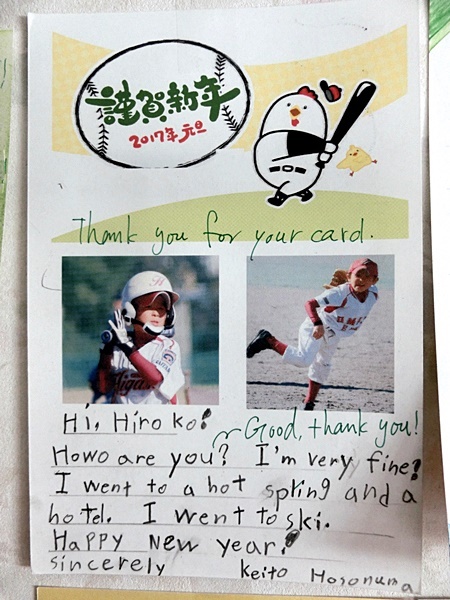 謹賀新年
2017年 元旦
Thank you for your card.
Hi, Hiroko!
Good, thank you!
Howo are you? I'm very fine?
I went to a hot spling and a
hotel. I went to ski.
HaPPY New year!
sincerely Keito Hosonuma